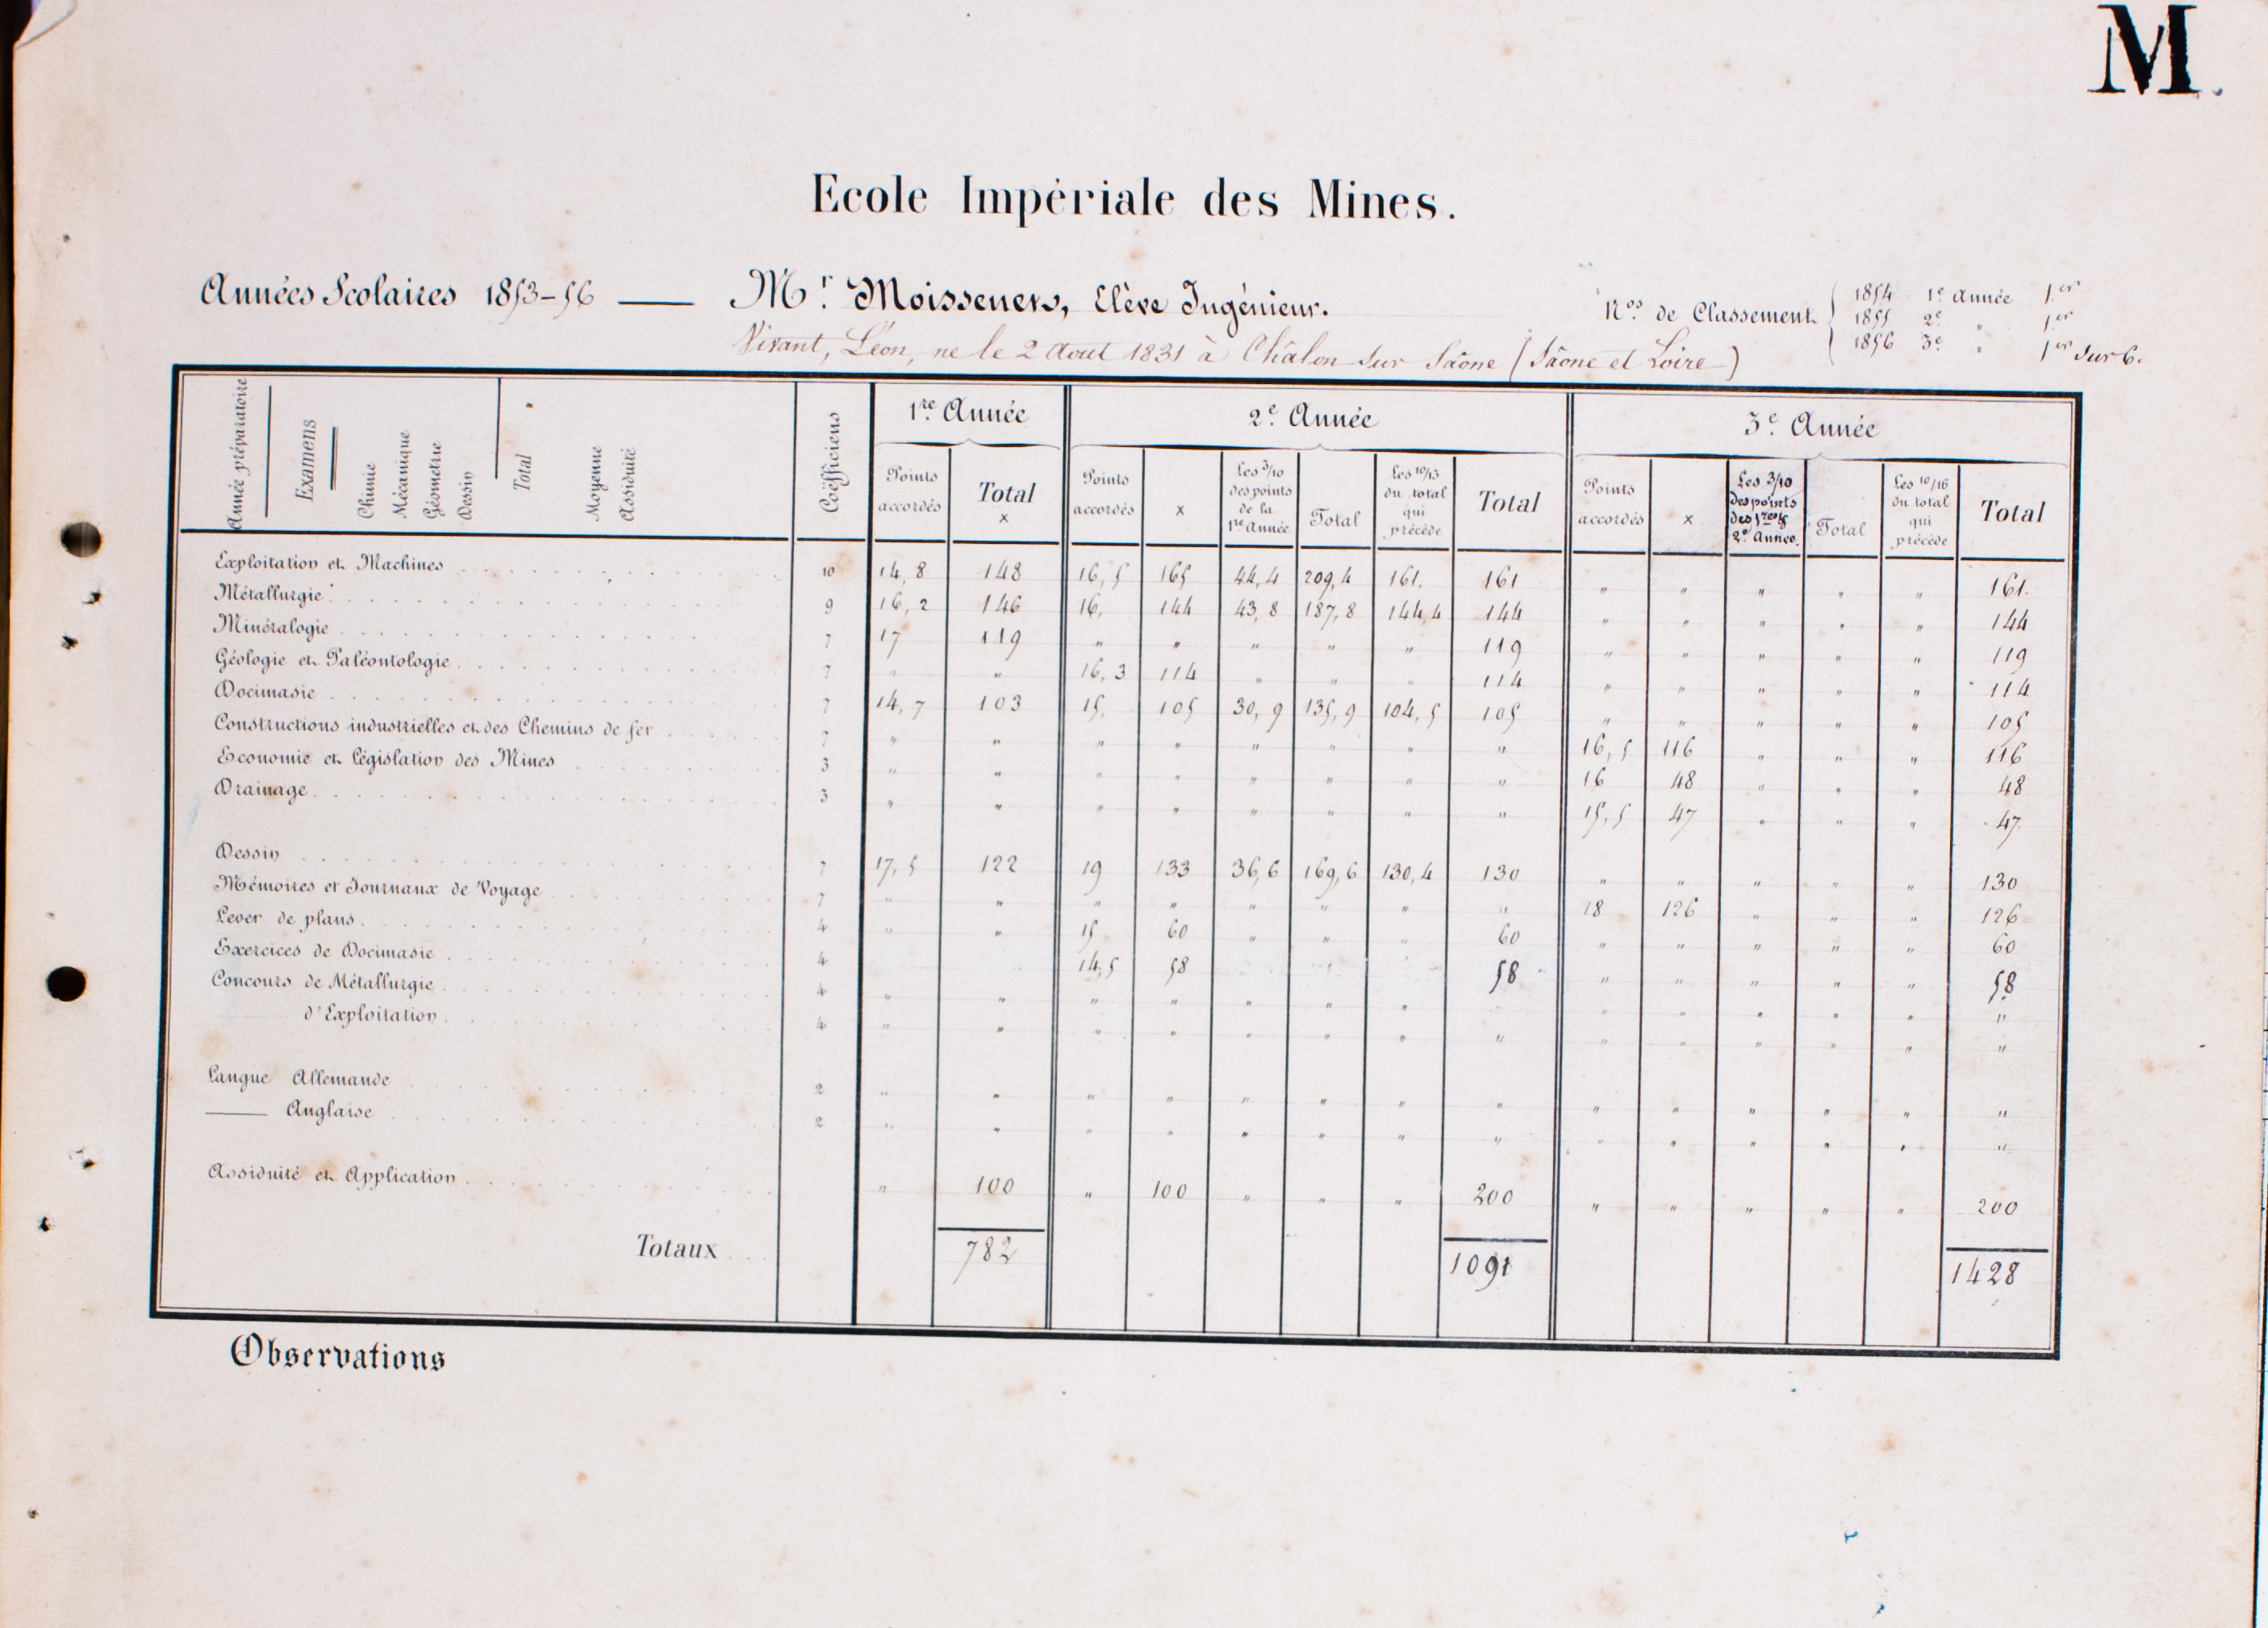 M.
Ecole Impériale des Mines.
Années Scolaires 1853-56 — Mr. Moisseners, Elève Ingénieur.
Vivant, Léon, né le 2 Aout 1831 à Châlon sur Saône (Saône et Loire)
Nos. de Classement
1854 1e Année 1er
1855 2e " 1er
1856 3e " 1er sur 6.
Année préparatoire
Examens
Chimie
Mécanique
Géométrie
Dessin
Total
Moyenne
Assiduité
Coëfficiens
1re Année
2e Année
3e Année
Points accordés
Total x
Points accordés
x
Les 3/10 des points de la 1re Année
Total
Les 10/13 du total qui précède
Total
Points accordés
x
Les 3/10 des points des 1res & 2e Année.
Total
Les 10/16 du total qui précède
Total
Exploitation et Machines 10 14,8 148 16,5 165 44,4 209,4 161. 161 " " " " " 161.
Métallurgie 9 16,2 146 16, 144 43,8 187,8 144,4 144 " " " " " 144
Minéralogie 7 17 119 " " " " " 119 " " " " " 119
Géologie et Paléontologie 7 " " 16,3 114 " " " 114 " " " " " 114
Docimasie 7 14,7 103 15, 105 30,9 135,9 104,5 105 " " " " " 105
Constructions industrielles et des Chemins de fer 7 " " " " " " " " 16,5 116 " " " 116
Economie et Législation des Mines 3 " " " " " " " " 16 48 " " " 48
Drainage 3 " " " " " " " " 15,5 47 " " " 47
Dessin 7 17,5 122 19 133 36,6 169,6 130,4 130 " " " " " 130
Mémoires et Journaux de Voyage 7 " " " " " " " " 18 126 " " " 126
Lever de plans 4 " " 15 60 " " " 60 " " " " " 60
Exercices de Docimasie 4 14,5 58 58 " " " " " 58
Concours de Métallurgie 4 " " " " " " " " " " " " " "
d'Exploitation 4 " " " " " " " " " " " " " "
Langue Allemande 2 " " " " " " " " " " " " " "
— Anglaise 2 " " " " " " " " " " " " " "
Assiduité et Application " 100 " 100 " " " 200 " " " " " 200
Totaux 782 1091 1428
Observations